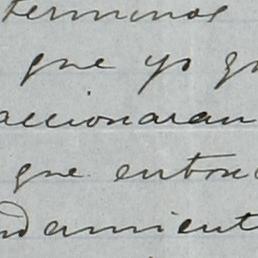 terminos
que yo
accionaran
que enton
damient